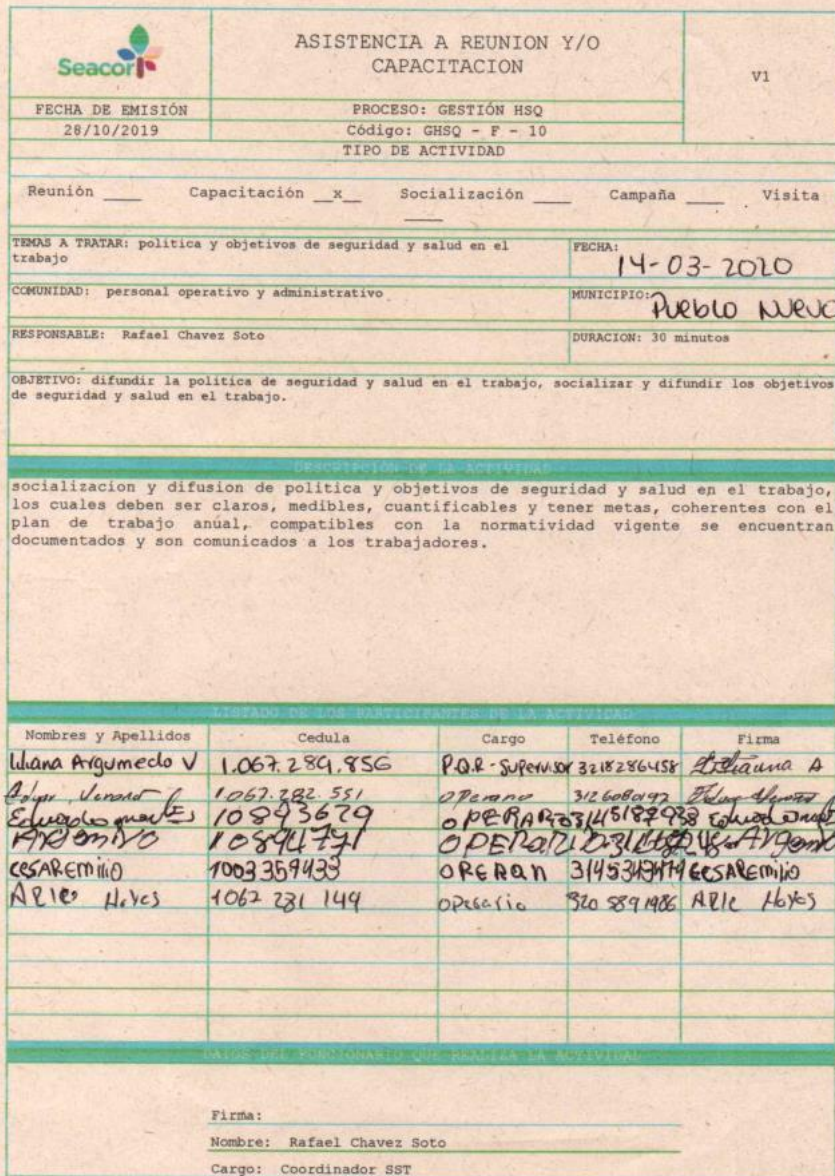 Seacor
ASISTENCIA A REUNION Y/O
CAPACITACION
V1
FECHA DE EMISIÓN
28/10/2019
PROCESO: GESTIÓN HSQ
Código: GHSQ - F - 10
TIPO DE ACTIVIDAD
Reunión ____ Capacitación __x_ Socialización ____ Campaña ____ Visita
____
TEMAS A TRATAR: politica y objetivos de seguridad y salud en el
trabajo
FECHA:
14-03-2020
COMUNIDAD: personal operativo y administrativo
MUNICIPIO: Pueblo Nuevo
RESPONSABLE: Rafael Chavez Soto
DURACION: 30 minutos
OBJETIVO: difundir la politica de seguridad y salud en el trabajo, socializar y difundir los objetivos
de seguridad y salud en el trabajo.
DESCRIPCIÓN DE LA ACTIVIDAD
socializacion y difusion de politica y objetivos de seguridad y salud en el trabajo,
los cuales deben ser claros, medibles, cuantificables y tener metas, coherentes con el
plan de trabajo anúal, compatibles con la normatividad vigente se encuentran
documentados y son comunicados a los trabajadores.
LISTADO DE LOS PARTICIPANTES DE LA ACTIVIDAD
Nombres y Apellidos Cedula Cargo Teléfono Firma
liliana Argumedo V 1.067.289.856 P.Q.R - Supervisor 3218286458
1.067.282.551 operario 3126080192
10893679 OPERARIO
10894771 OPERARIO
CESAREmiliO 1003359433 OPERAN CESAREmiliO
1062 281 149 operario 320 5891986
DATOS DEL FUNCIONARIO QUE REALIZA LA ACTIVIDAD
Firma:
Nombre: Rafael Chavez Soto
Cargo: Coordinador SST